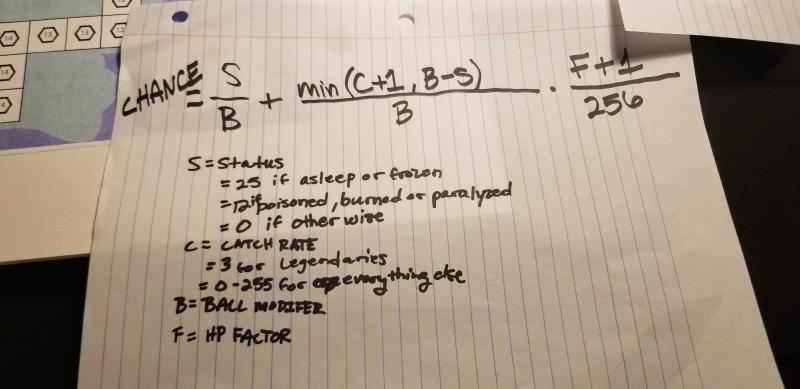 CHANCE = S/B + min(C+1, B-S)/B · F+1/256
S = Status
= 25 if asleep or frozen
= 12 if poisoned, burned or paralyzed
= 0 if other wise
C = CATCH RATE
= 3 for Legendaries
= 0-255 for everything else
B = BALL MODIFER
F = HP FACTOR
14
13
13
12
14